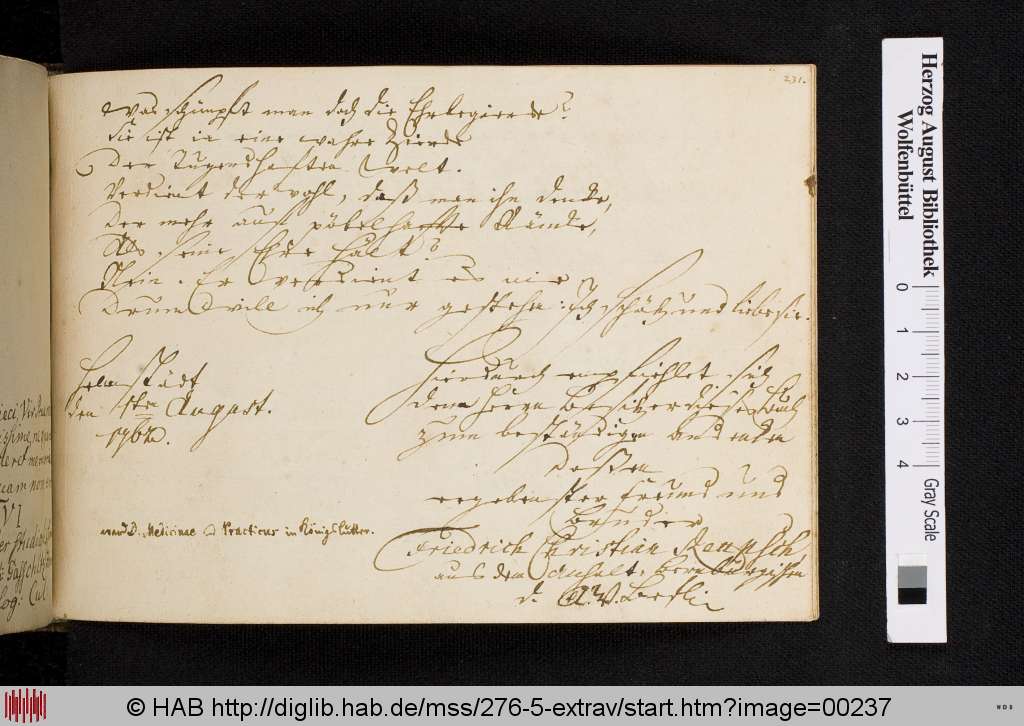 231.
Was schimpft man doch die Ehrbegierde?
Sie ist ja eine wahre Zierde
Der Tugendhaften Welt.
Verdient der wohl, daß man ihn dencke,
Der mehr auf pöbelhaffte Räncke,
Als seine Ehre hält?
Nein. Er verdient es nie
Drum will ich nur gestehn: Ich schätz und liebe sie.
Helmstädt
den 1sten August.
1762.
Hierdurch empfiehlet sich
dem Herrn Besitzer dieses Buchs
zum beständigen andencken
deßen
ergebenster Freund und
Bruder
Friedrich Christian
aus dem Anhalt-Bernburgischen
d.
ward D. Medicinae Practicus in Königslutter.
Herzog August Bibliothek
Wolfenbüttel
0 1 2 3 4
Gray Scale
© HAB http://diglib.hab.de/mss/276-5-extrav/start.htm?image=00237
WDB